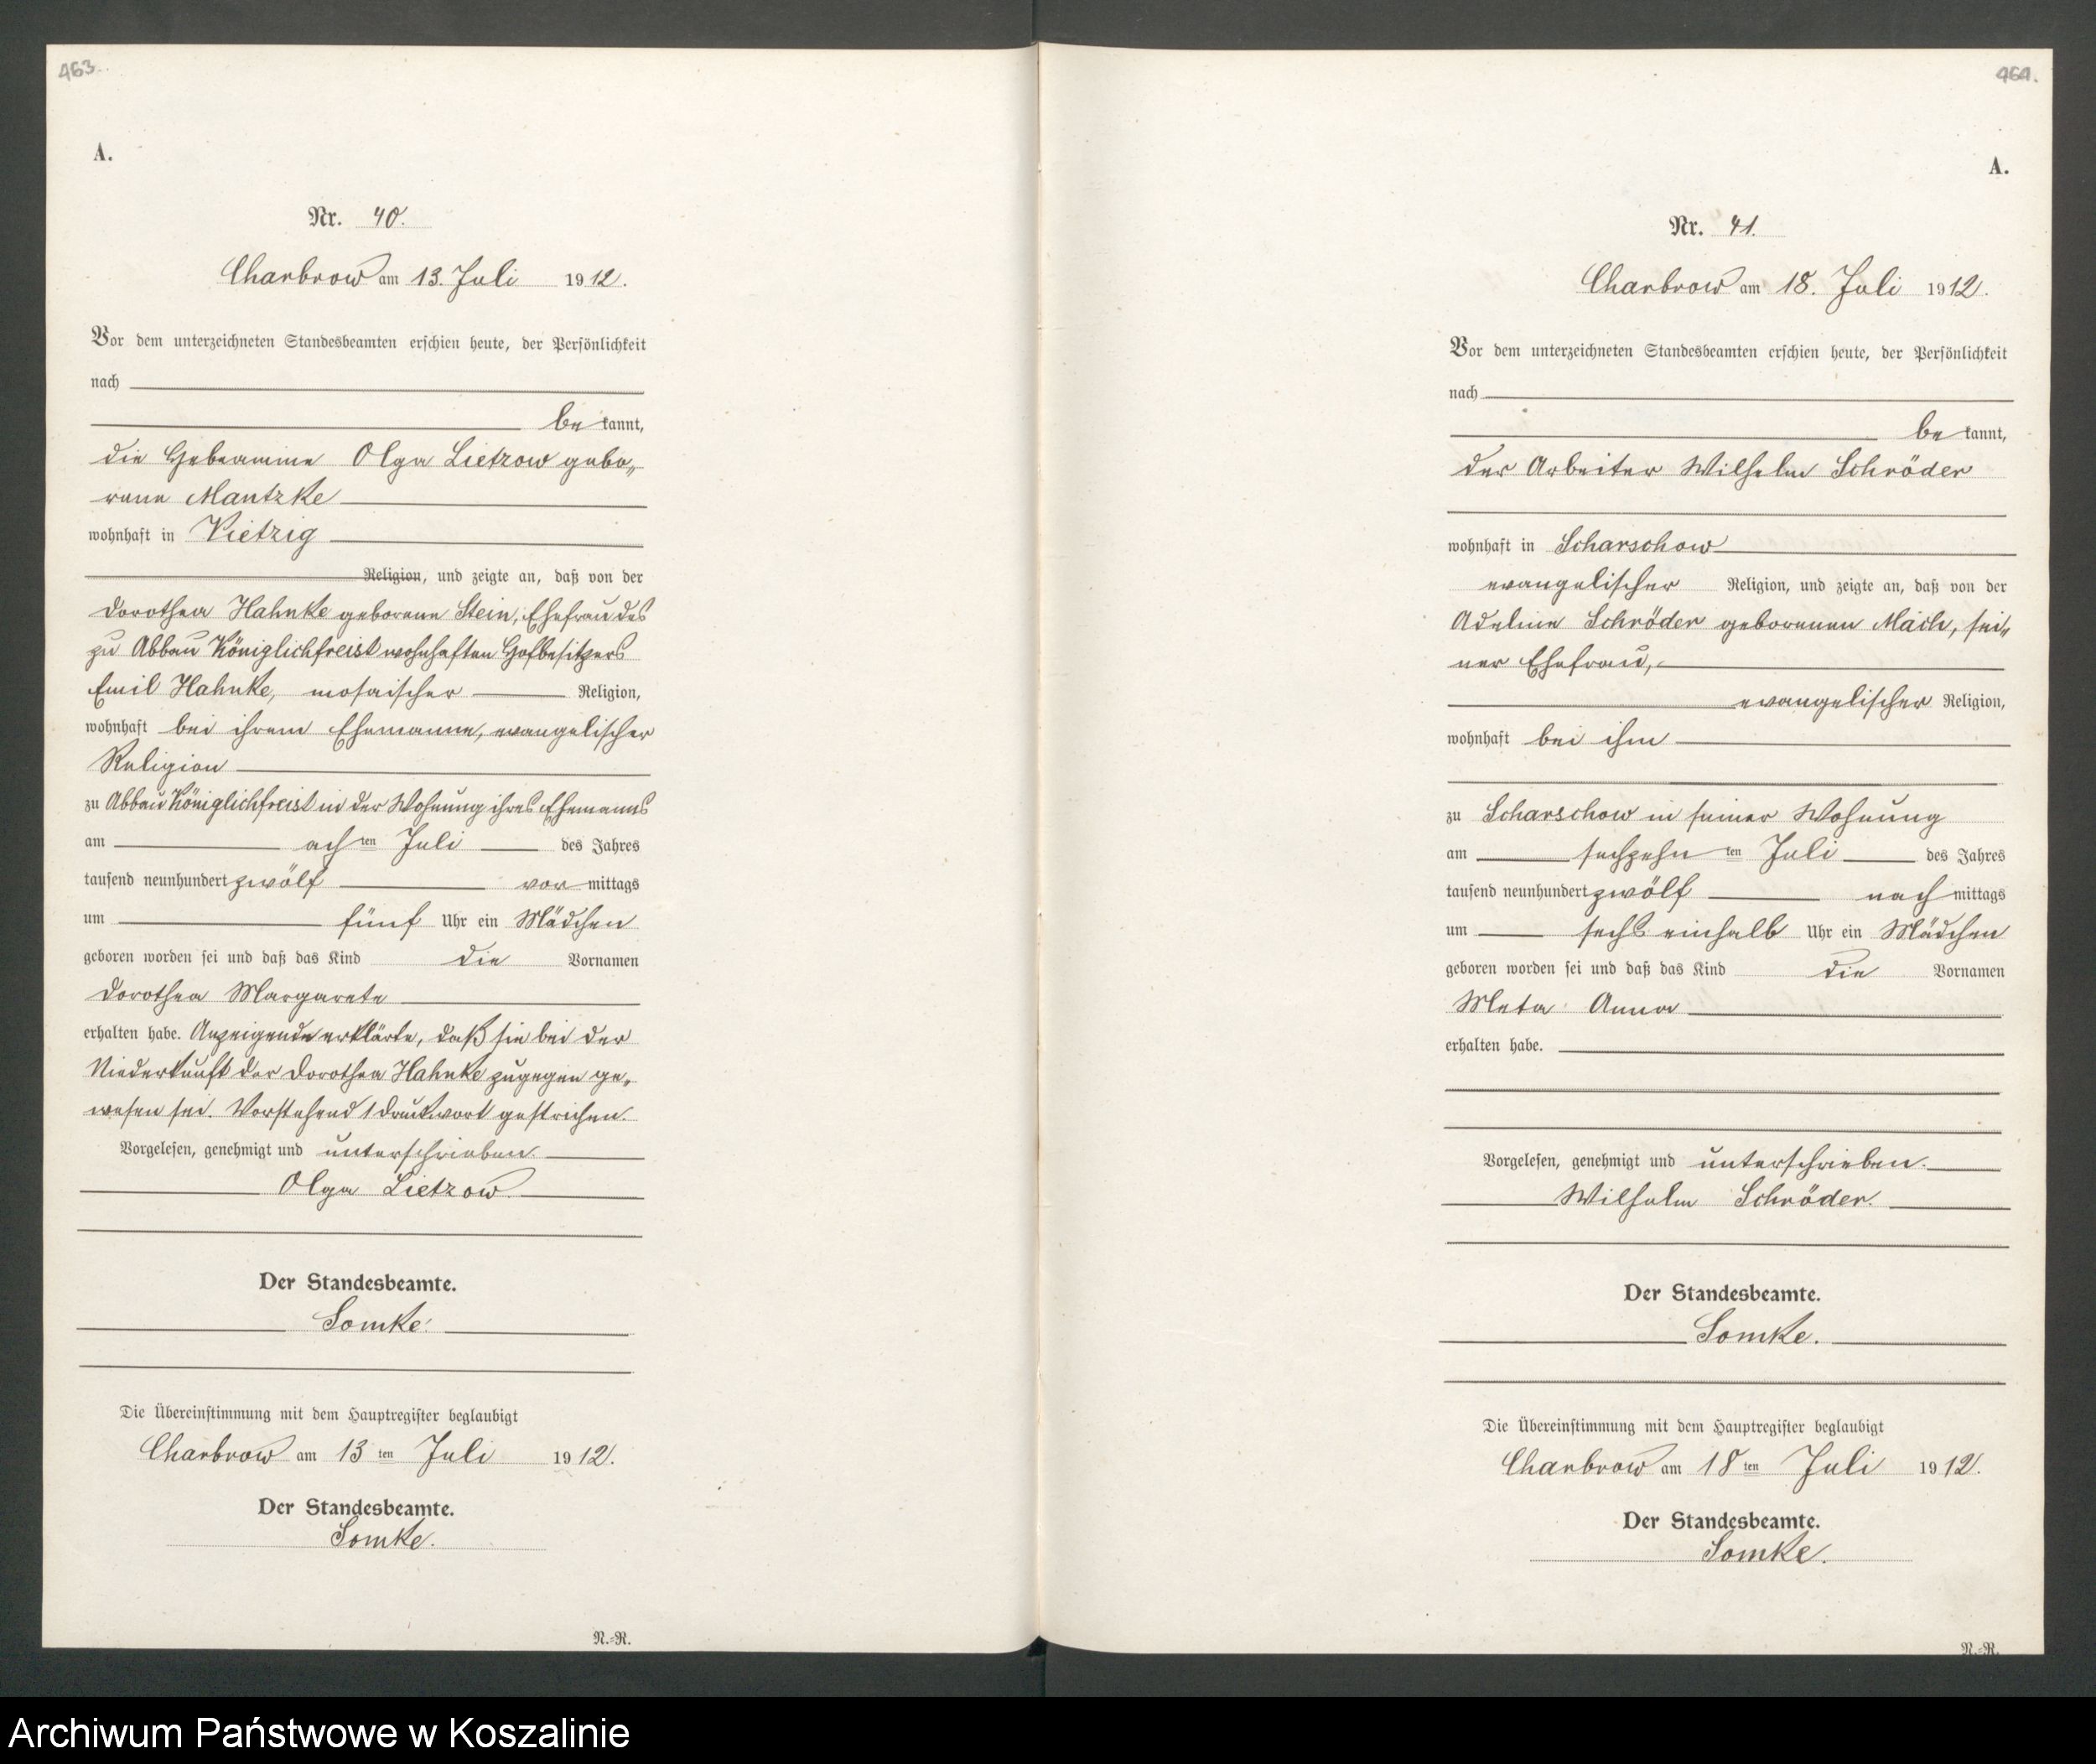 463.
A.
Nr. 40.
Charbrow am 13. Juli 1912.
Vor dem unterzeichneten Standesbeamten erschien heute, der Persönlichkeit
nach
be kannt,
die Hebeamme Olga Lietzow gebo„
rene Mantzke
wohnhaft in Vietzig
Religion, und zeigte an, daß von der
Dorothea Hahnke geborene Stein, Ehefrau des
zu Abbau Königlichfreist wohnhaften Hofbesitzers
Emil Hahnke, mosaischer Religion,
wohnhaft bei ihrem Ehemanne, evangelischer
Religion
zu Abbau Königlichfreist in der Wohnung ihres Ehemanns
am achten Juli des Jahres
tausend neunhundert zwölf vor mittags
um fünf Uhr ein Mädchen
geboren worden sei und daß das Kind die Vornamen
Dorothea Margarete
erhalten habe. Anzeigende erklärte, daß sie bei der
Niederkunft der Dorothea Hahnke zugegen ge„
wesen sei. Vorstehend 1 Druckwort gestrichen.
Vorgelesen, genehmigt und unterschrieben.
Olga Lietzow.
Der Standesbeamte.
Somke.
Die Übereinstimmung mit dem Hauptregister beglaubigt
Charbrow am 13 ten Juli 1912.
Der Standesbeamte.
Somke.
N.=R.
464.
A.
Nr. 41.
Charbrow am 18. Juli 1912.
Vor dem unterzeichneten Standesbeamten erschien heute, der Persönlichkeit
nach
be kannt,
der Arbeiter Wilhelm Schröder
wohnhaft in Scharschow
evangelischer Religion, und zeigte an, daß von der
Adeline Schröder geborenen Mach, sei„
ner Ehefrau,
evangelischer Religion,
wohnhaft bei ihm
zu Scharschow in seiner Wohnung
am sechzehn ten Juli des Jahres
tausend neunhundert zwölf nach mittags
um sechs einhalb Uhr ein Mädchen
geboren worden sei und daß das Kind die Vornamen
Meta Anna
erhalten habe.
Vorgelesen, genehmigt und unterschrieben.
Wilhelm Schröder.
Der Standesbeamte.
Somke.
Die Übereinstimmung mit dem Hauptregister beglaubigt
Charbrow am 18 ten Juli 1912.
Der Standesbeamte.
Somke.
N.=R.
Archiwum Państwowe w Koszalinie